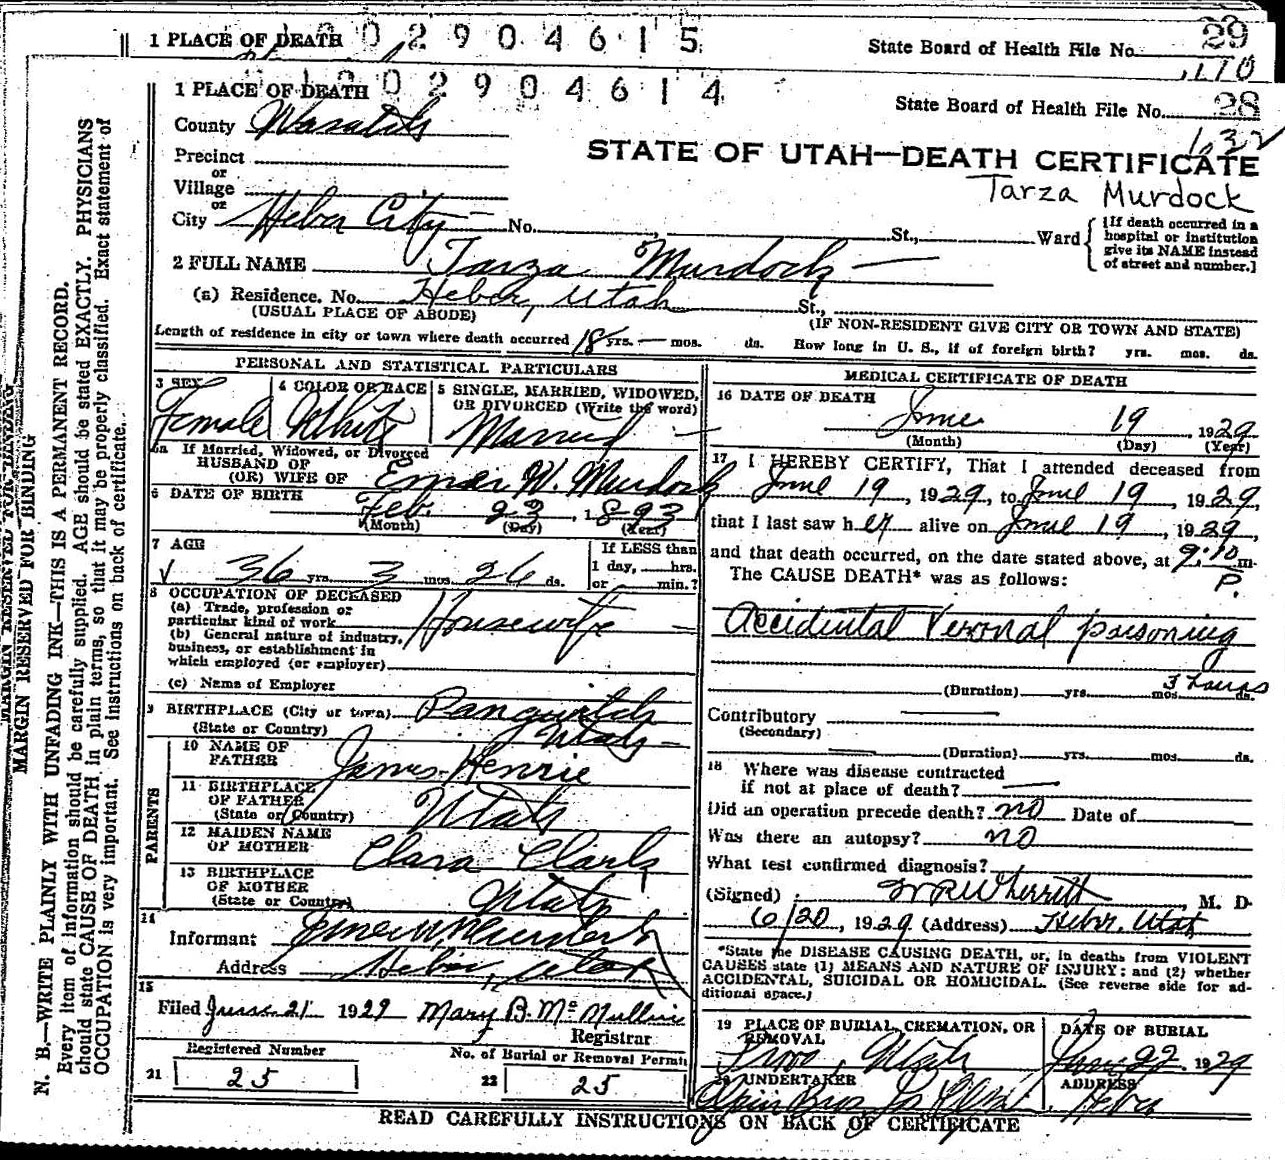 1 PLACE OF DEATH 0 0 2 9 0 4 6 1 5
State Board of Health File No. 29
110
1 PLACE OF DEATH 0 0 2 9 0 4 6 1 4
State Board of Health File No. 28
132
County Wasatch
STATE OF UTAH—DEATH CERTIFICATE
Tarza Murdock
Precinct
or
Village
or
City Heber City — No. , St., Ward
[If death occurred in a
hospital or institution
give its NAME instead
of street and number.]
2 FULL NAME Tarza Murdock
(a) Residence. No. Heber, Utah St.,
(USUAL PLACE OF ABODE) (IF NON-RESIDENT GIVE CITY OR TOWN AND STATE)
Length of residence in city or town where death occurred 18 yrs. — mos. ds. How long in U. S., if of foreign birth? yrs. mos. ds.
PERSONAL AND STATISTICAL PARTICULARS
3 SEX 4 COLOR OR RACE 5 SINGLE, MARRIED, WIDOWED,
OR DIVORCED (Write the word)
Female White Married —
5a If Married, Widowed, or Divorced
HUSBAND OF
(OR) WIFE OF Emer W. Murdock
6 DATE OF BIRTH Feb. 23, 1893
(Month) (Day) (Year)
7 AGE If LESS than
1 day, hrs.
or min.?
√ 36 yrs. 3 mos. 26 ds.
8 OCCUPATION OF DECEASED
(a) Trade, profession or
particular kind of work Housewife —
(b) General nature of industry,
business, or establishment in
which employed (or employer)
(c) Name of Employer
9 BIRTHPLACE (City or town) Panguitch
(State or Country) Utah —
PARENTS
10 NAME OF
FATHER James Henrie
11 BIRTHPLACE
OF FATHER
(State or Country) Utah
12 MAIDEN NAME
OF MOTHER Clara Clark
13 BIRTHPLACE
OF MOTHER
(State or Country) Utah
14
Informant Emer W Murdock
Address Heber, Utah
15
Filed June 21 1929 Mary B. McMullin
Registrar
Registered Number No. of Burial or Removal Permit
21 25 22 25
MEDICAL CERTIFICATE OF DEATH
16 DATE OF DEATH
June 19, 1929
(Month) (Day) (Year)
17 I HEREBY CERTIFY, That I attended deceased from
June 19, 1929, to June 19, 1929,
that I last saw her alive on June 19, 1929,
and that death occurred, on the date stated above, at 9:10 m.
P.
The CAUSE DEATH* was as follows:
Accidental Veronal poisoning
(Duration) yrs. mos. 3 hours ds.
Contributory
(Secondary)
(Duration) yrs. mos. ds.
18 Where was disease contracted
if not at place of death?
Did an operation precede death? no Date of
Was there an autopsy? no
What test confirmed diagnosis?
(Signed) W R Wherritt, M. D.
6/20, 1929 (Address) Heber, Utah
*State the DISEASE CAUSING DEATH, or, in deaths from VIOLENT
CAUSES state (1) MEANS AND NATURE OF INJURY; and (2) whether
ACCIDENTAL, SUICIDAL OR HOMICIDAL. (See reverse side for ad-
ditional space.)
19 PLACE OF BURIAL, CREMATION, OR
REMOVAL DATE OF BURIAL
Provo, Utah June 22, 1929
20 UNDERTAKER ADDRESS
Heber
READ CAREFULLY INSTRUCTIONS ON BACK OF CERTIFICATE
MARGIN RESERVED FOR BINDING
MARGIN RESERVED FOR BINDING
N. B.—WRITE PLAINLY WITH UNFADING INK—THIS IS A PERMANENT RECORD.
Every item of information should be carefully supplied. AGE should be stated EXACTLY. PHYSICIANS
should state CAUSE OF DEATH in plain terms, so that it may be properly classified. Exact statement of
OCCUPATION is very important. See instructions on back of certificate.